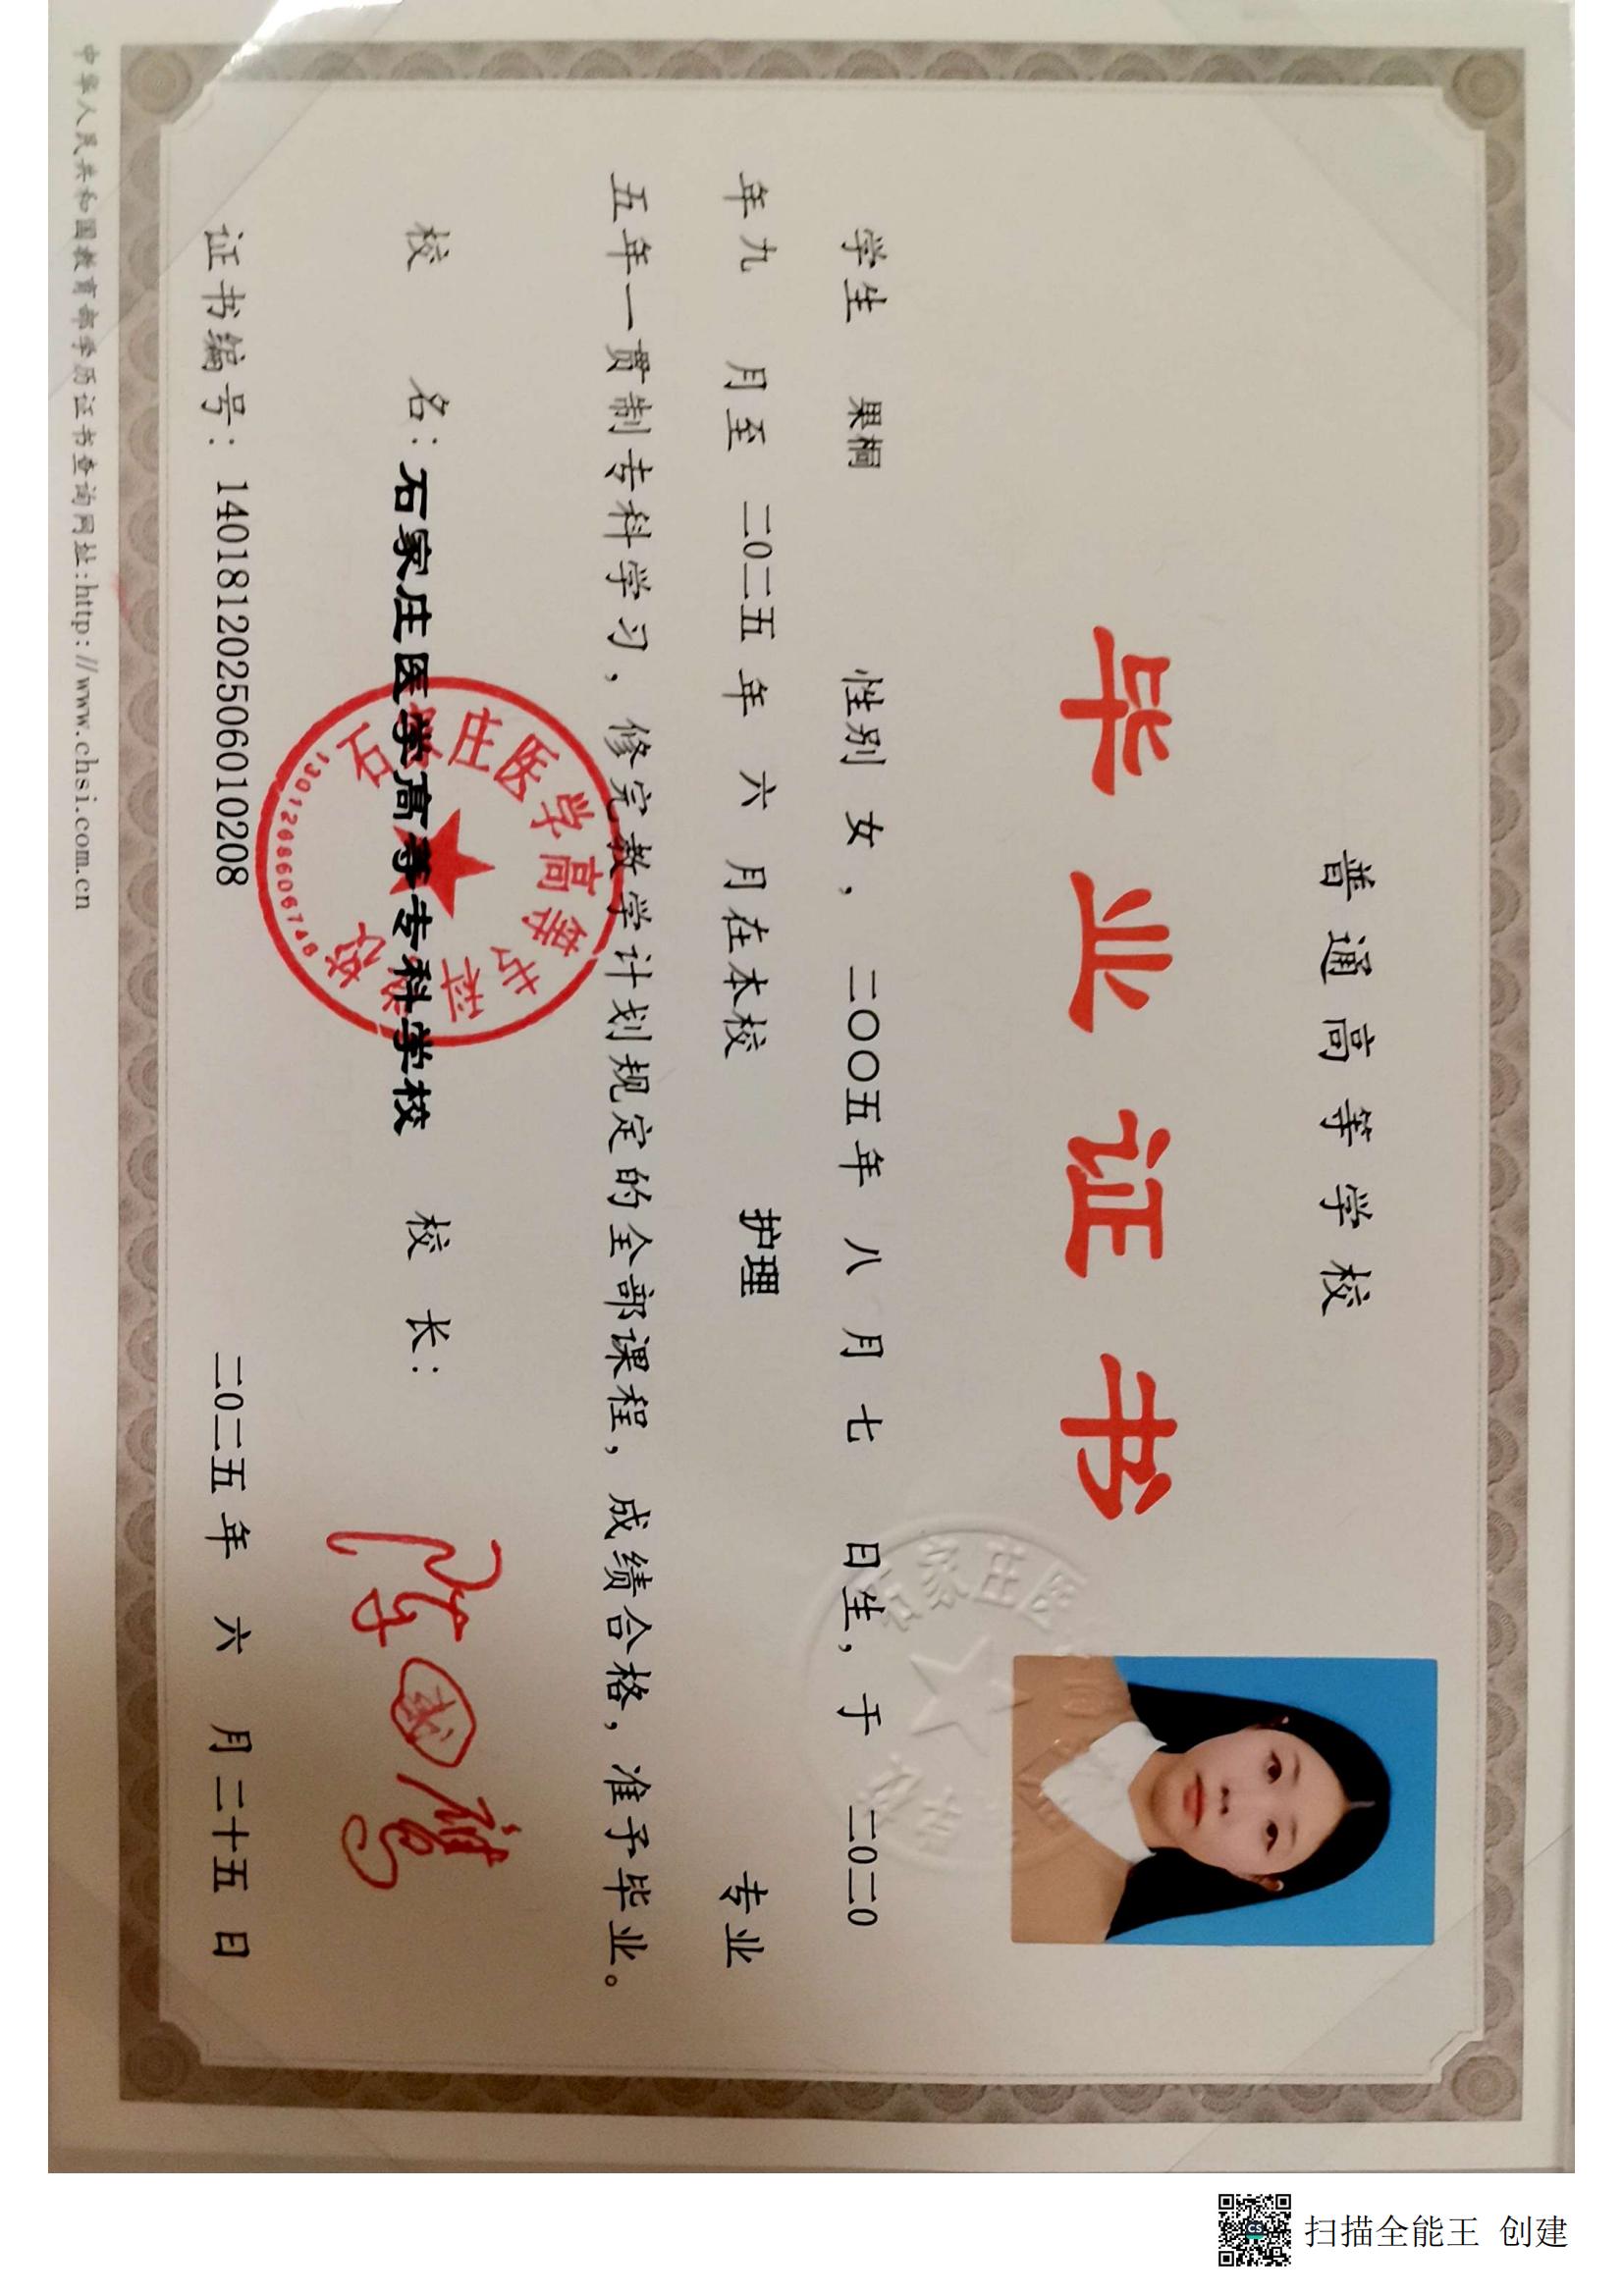 普通高等学校
毕业证书
学生 果桐 性别 女， 二〇〇五年 八 月 七 日生，于 二0二0
年九 月至 二0二五 年 六 月在本校 护理 专业
五年一贯制专科学习，修完教学计划规定的全部课程，成绩合格，准予毕业。
校 名：石家庄医学高等专科学校 校 长：
石家庄医学高等专科学校
证书编号：140181202506010208 二0二五 年 六 月 二十五 日
中华人民共和国教育部学历证书查询网址:http://www.chsi.com.cn
石家庄医
CS
扫描全能王 创建